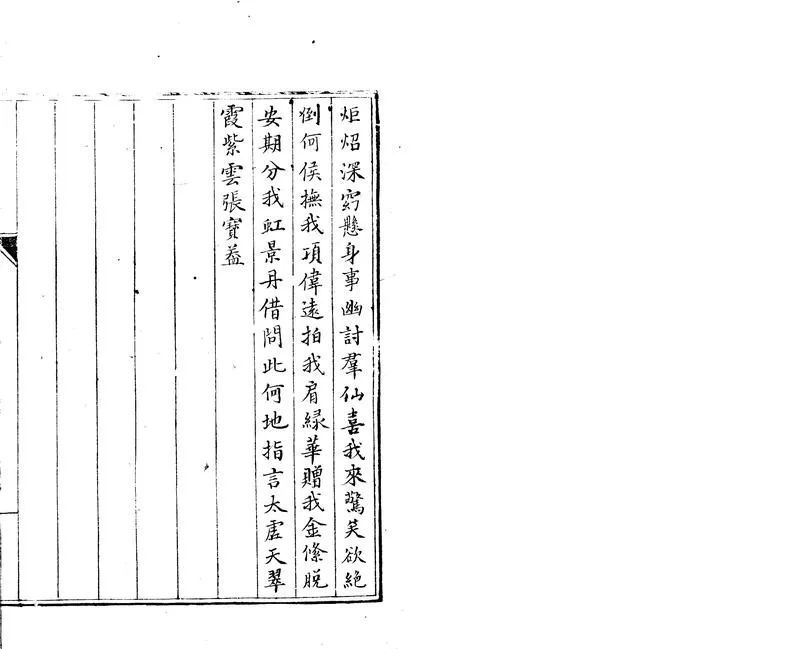 炬炤深窍懸身事幽討羣仙喜我來驚笑欲絶
倒何侯撫我項偉遠拍我肩緑華贈我金條脱
安期分我虹景丹借問此何地指言太虚天翠
霞紫雲張寶蓋